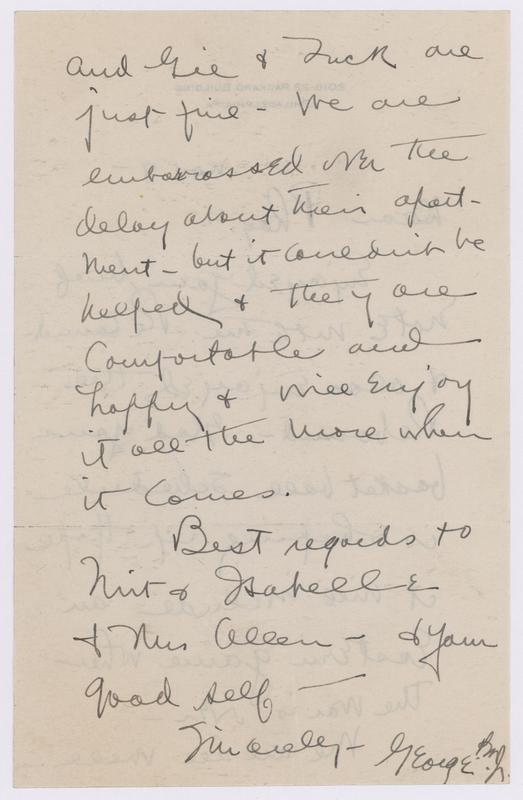 and Gee & Tuck are
just fine - We are
embarrassed over the
delay about their apart-
ment - but it couldn't be
helped & they are
comfortable and
happy & will enjoy
it all the more when
it comes.
Best regards to
& Isabelle
& Mrs Allen - & your
good self -
Sincerely -
George